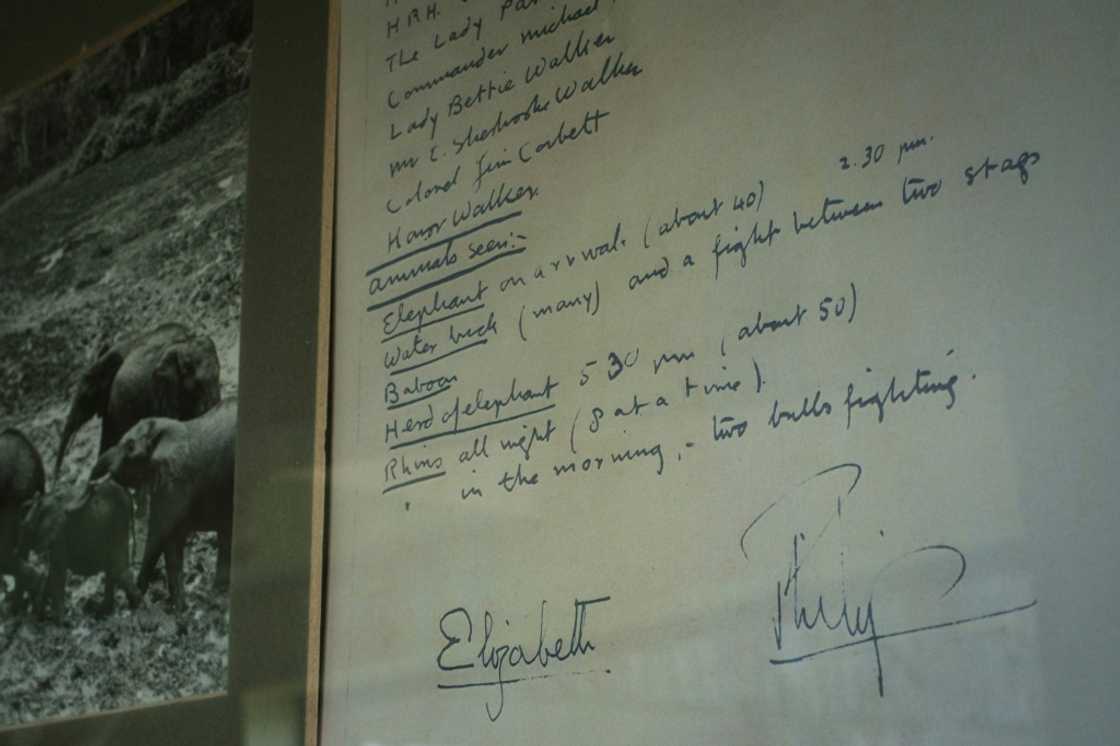 H.R.H.
The Lady
Commander Michael
Lady Bettie Walker
Mr E. Sherbrooke Walker
Colonel Jim Corbett
Honor Walker.
Animals seen:-
Elephant on arrival. (about 40) 2.30 pm.
Water buck (many) and a fight between two stags
Baboon
Herd of elephant 5 30 pm (about 50)
Rhino all night (8 at a time).
" in the morning, - two bulls fighting.
Elizabeth
Philip